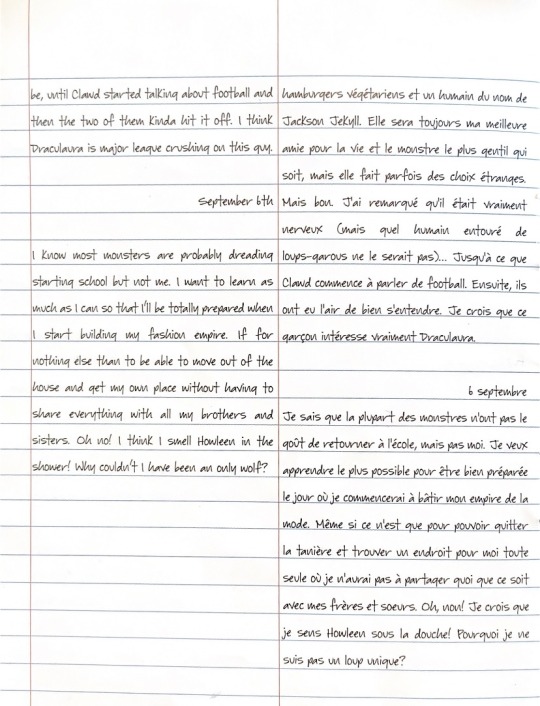 be, until Clawd started talking about football and
then the two of them kinda hit it off. I think
Draculaura is major league crushing on this guy.
September 6th
I know most monsters are probably dreading
starting school but not me. I want to learn as
much as I can so that I'll be totally prepared when
I start building my fashion empire. If for
nothing else than to be able to move out of the
house and get my own place without having to
share everything with all my brothers and
sisters. Oh no! I think I smell Howleen in the
shower! Why couldn't I have been an only wolf?
hamburgers végétariens et un humain du nom de
Jackson Jekyll. Elle sera toujours ma meilleure
amie pour la vie et le monstre le plus gentil qui
soit, mais elle fait parfois des choix étranges.
Mais bon. J'ai remarqué qu'il était vraiment
nerveux (mais quel humain entouré de
loups-garous ne le serait pas)... Jusqu'à ce que
Clawd commence à parler de football. Ensuite, ils
ont eu l'air de bien s'entendre. Je crois que ce
garçon intéresse vraiment Draculaura.
6 septembre
Je sais que la plupart des monstres n'ont pas le
goût de retourner à l'école, mais pas moi. Je veux
apprendre le plus possible pour être bien préparée
le jour où je commencerai à bâtir mon empire de la
mode. Même si ce n'est que pour pouvoir quitter
la tanière et trouver un endroit pour moi toute
seule où je n'aurai pas à partager quoi que ce soit
avec mes frères et soeurs. Oh, non! Je crois que
je sens Howleen sous la douche! Pourquoi je ne
suis pas un loup unique?